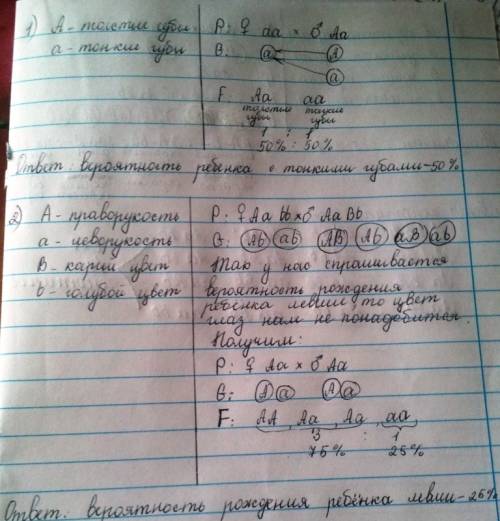 1) А - толстые губы
а - тонкие губы
P: ♀ аа × ♂ Аа
G: а А
а
F: Аа аа
толстые тонкие
губы губы
1 : 1
50% : 50%
Ответ: вероятность ребенка с тонкими губами - 50%
2) А - праворукость
а - леворукость
В - карий цвет
b - голубой цвет
P: ♀ Аа bb × ♂ Аа Bb
G: Ab ab AB Ab aB ab
Так у нас спрашивается
вероятность рождения
ребёнка левши то цвет
глаз нам не понадобится.
Получим:
P: ♀ Аа × ♂ Аа
G: А а А а
F: АА, Аа, Аа, аа
3 : 1
75% 25%
Ответ: вероятность рождения ребёнка левши - 25%